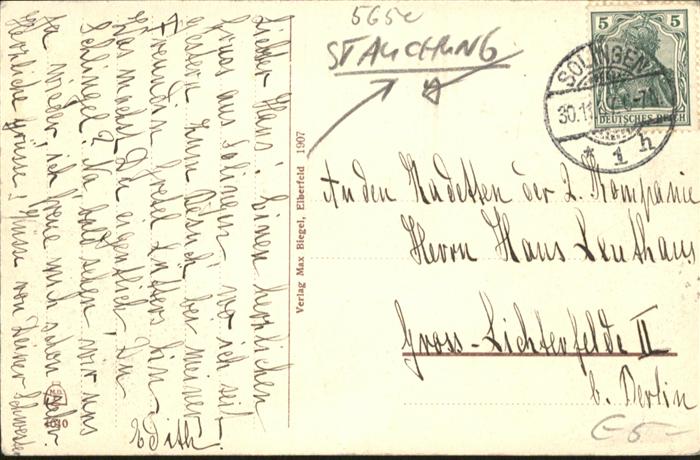 565c
STAUCHUNG
5 5
DEUTSCHES REICH
SOLINGEN
30.11
* 1 h
An den Kadetten der 2. Kompanie
Herrn Hans Leuthaus
Gross-Lichterfelde II
b. Berlin
E 5-
Verlag Max Biegel, Elberfeld 1907
Lieber Hans! Einen herzlichen
Gruss aus Solingen, wo ich seit
gestern zum Besuch bei meiner
Freundin Gretel Lüttges bin.
Was machst Du eigentlich, Du
Schlingel? Na bald sehen wir uns
ja wieder, ich freue mich schon sehr.
Herzliche Grüsse! Küsse von Deiner Schwester
Edith!
1010